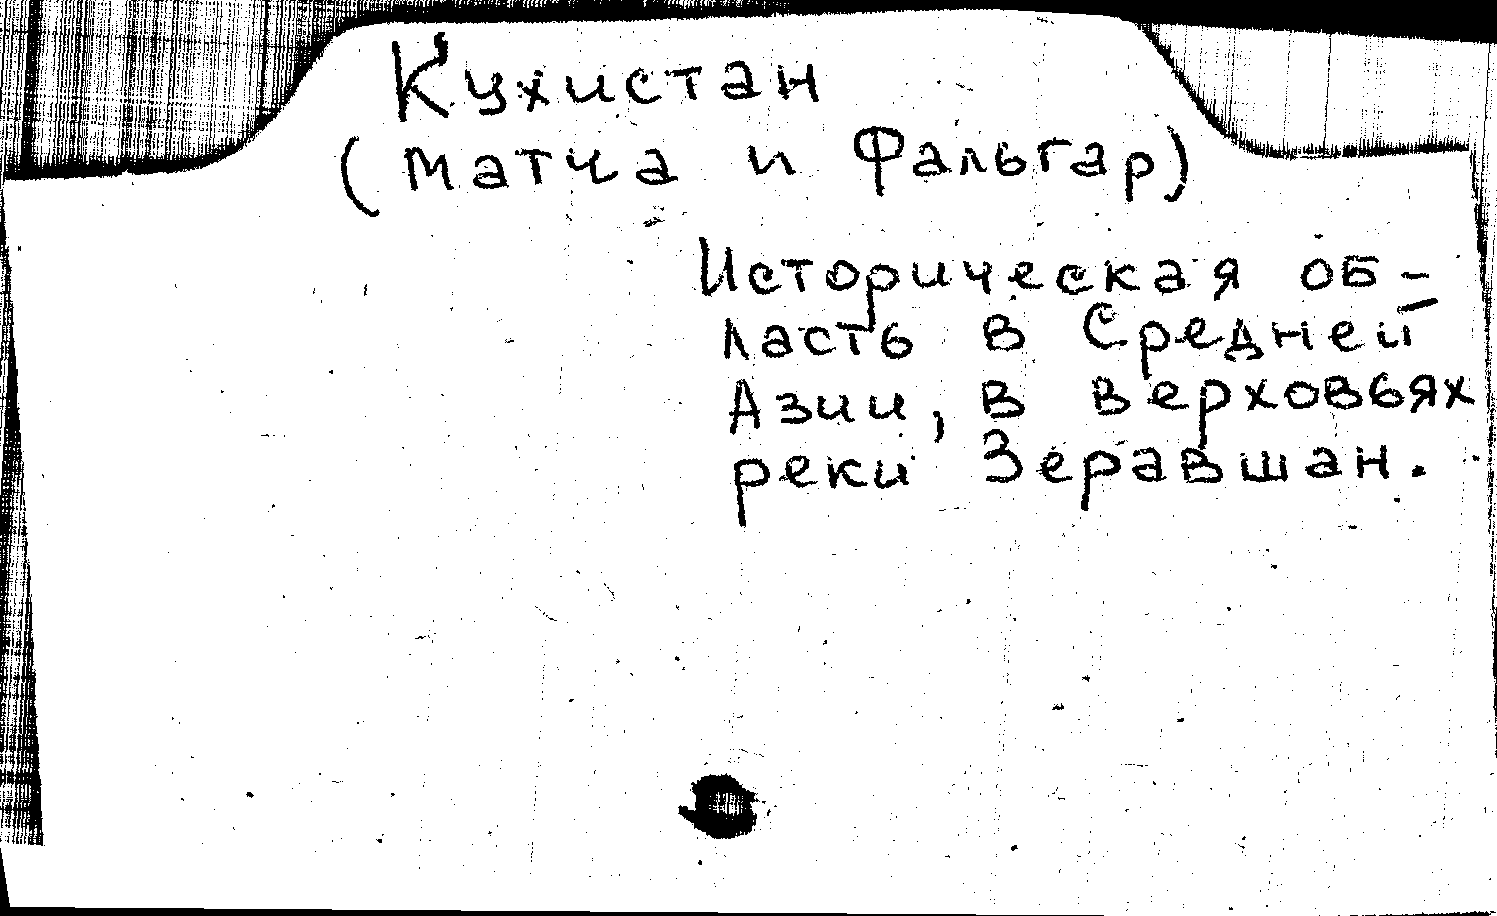 Кухистан
(Матча и Фальгар)
Историческая об-
ласть в Средней
Азии, в верховьях
реки Зеравшан.